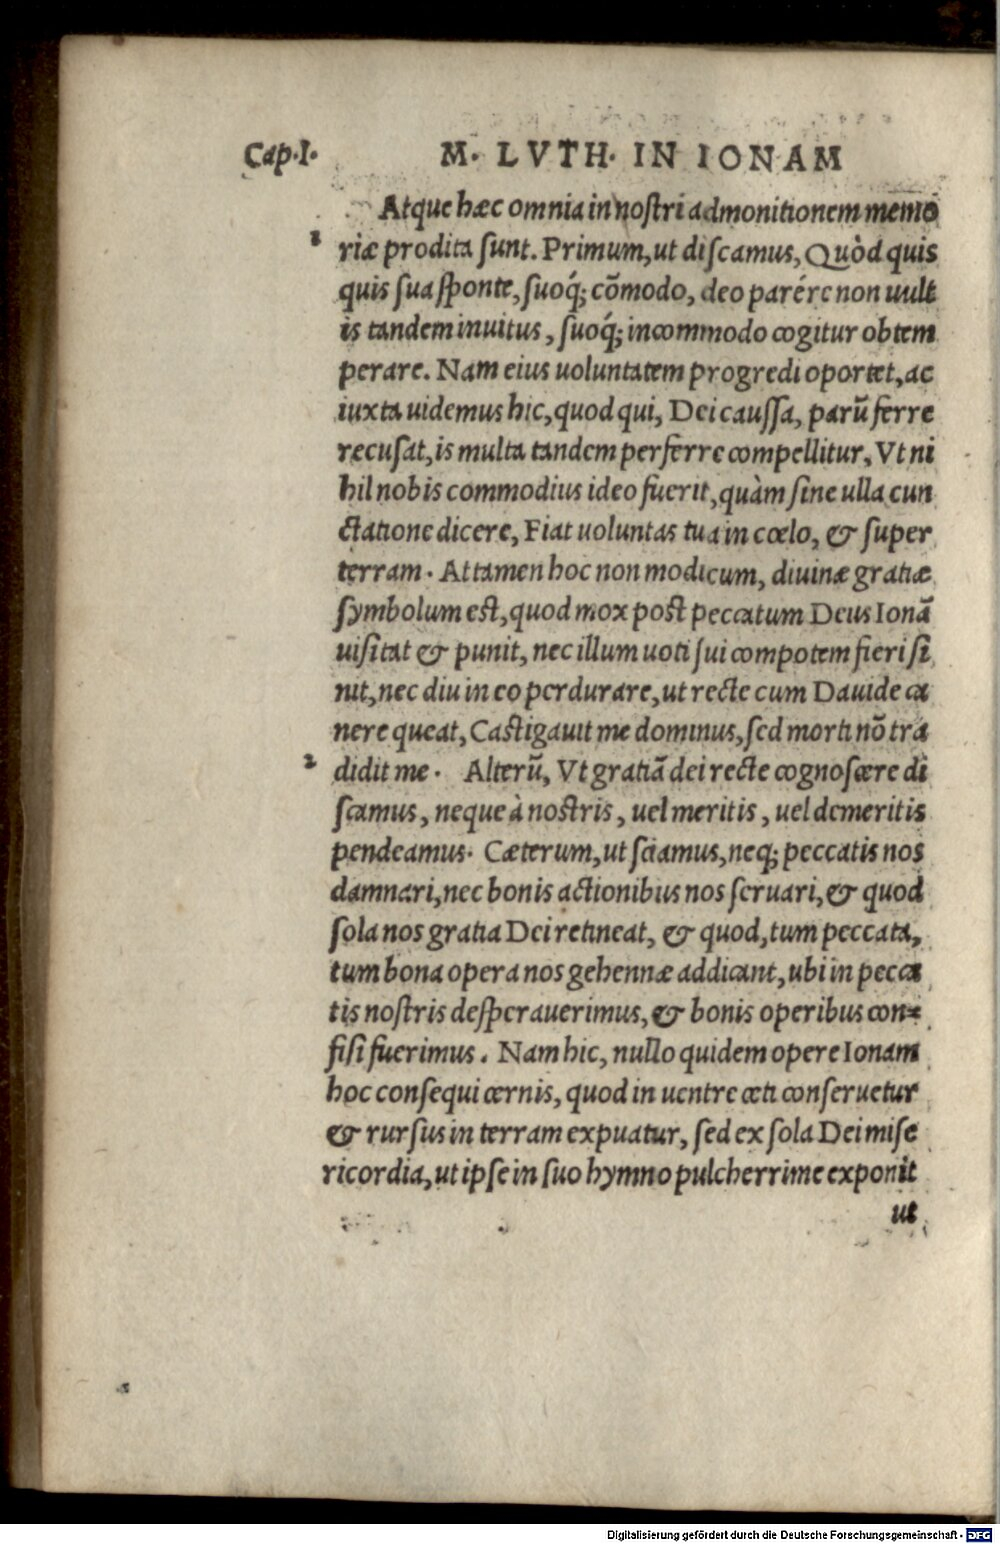 Cap.I. M. LVTH. IN IONAM
Atque hæc omnia in nostri admonitionem memo
1 riæ prodita sunt. Primum, ut discamus, Quòd quis
quis sua sponte, suoq́; cõmodo, deo parére non uult
is tandem inuitus, suoq́; incommodo cogitur obtem
perare. Nam eius uoluntatem progredi oportet, ac
iuxta uidemus hic, quod qui, Dei caussa, parũ ferre
recusat, is multa tandem perferre compellitur, Vt ni
hil nobis commodius ideo fuerit, quàm sine ulla cun
ctatione dicere, Fiat uoluntas tua in cœlo, & super
terram. Attamen hoc non modicum, diuinæ gratiæ
symbolum est, quod mox post peccatum Deus Ionã
uisitat & punit, nec illum uoti sui compotem fieri si
nit, nec diu in eo perdurare, ut recte cum Dauide ca
nere queat, Castigauit me dominus, sed morti nõ tra
2 didit me. Alterũ, Vt gratiã dei recte cognoscere di
scamus, neque à nostris, uel meritis, uel demeritis
pendeamus. Cæterum, ut sciamus, neq; peccatis nos
damnari, nec bonis actionibus nos seruari, & quod
sola nos gratia Dei retineat, & quod, tum peccata,
tum bona opera nos gehennæ addicant, ubi in pecca
tis nostris desperauerimus, & bonis operibus con=
fisi fuerimus. Nam hic, nullo quidem opere Ionam
hoc consequi cernis, quod in uentre ceti conseruetur
& rursus in terram expuatur, sed ex sola Dei mise
ricordia, ut ipse in suo hymno pulcherrime exponit
ut
Digitalisierung gefördert durch die Deutsche Forschungsgemeinschaft - DFG